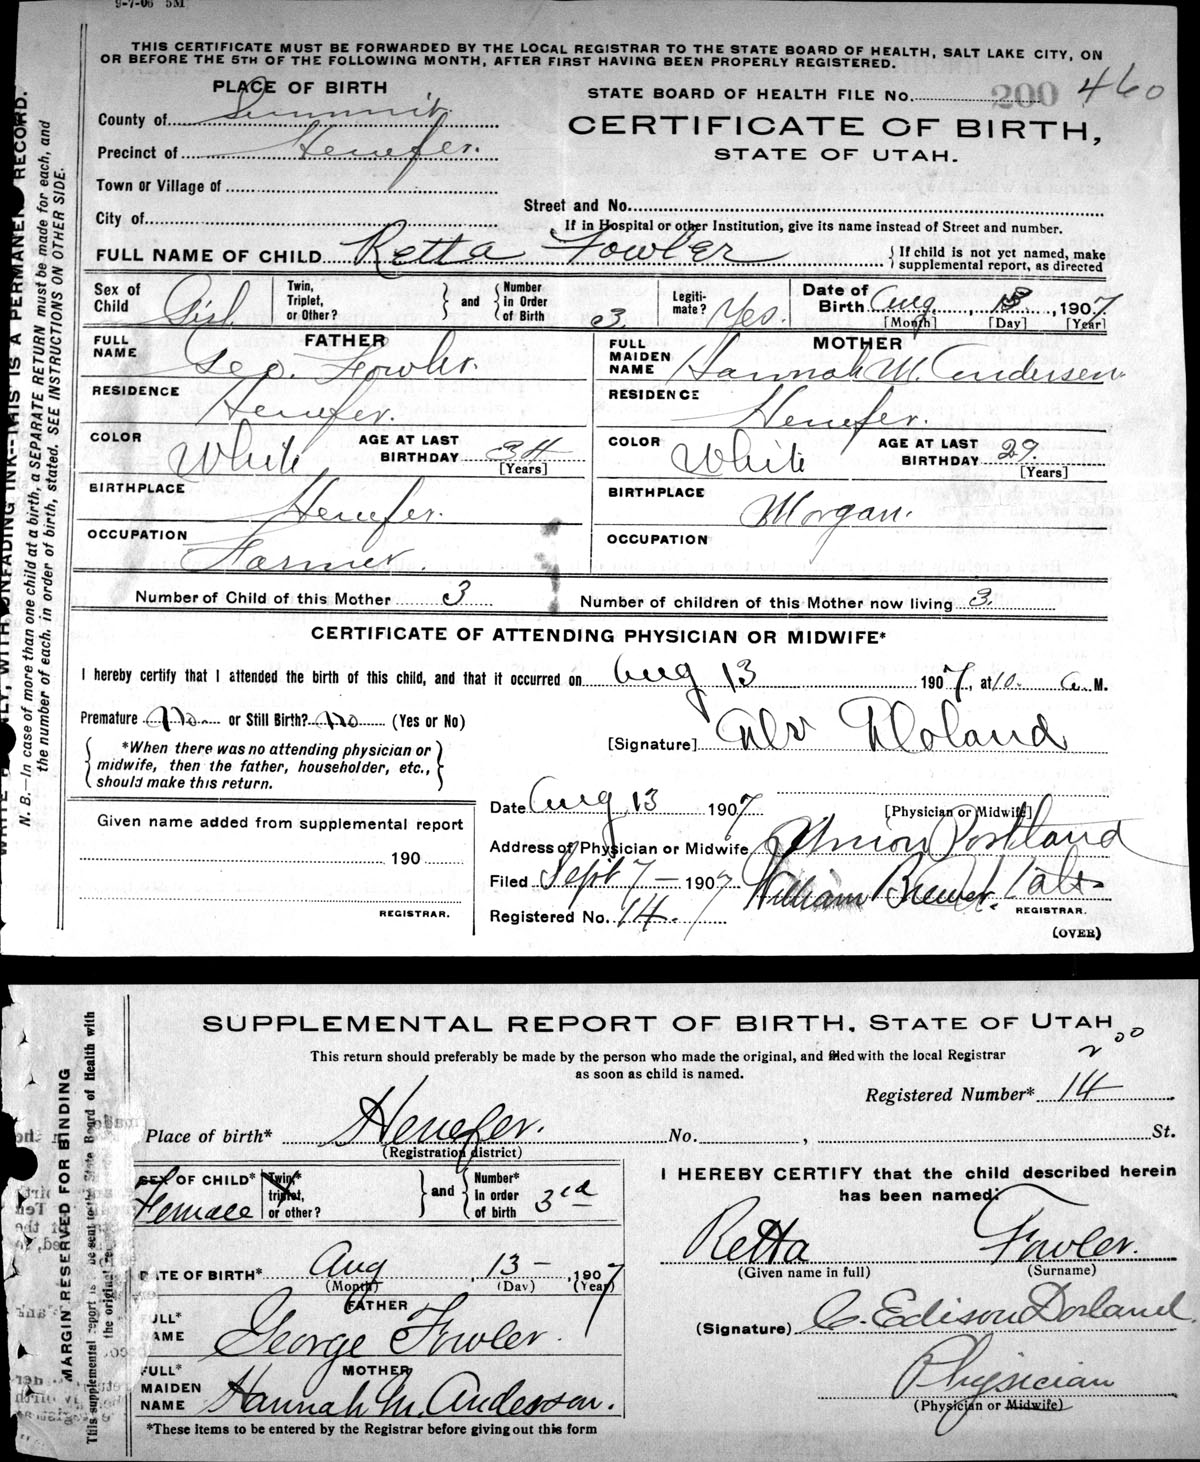 9-7-06 5M
THIS CERTIFICATE MUST BE FORWARDED BY THE LOCAL REGISTRAR TO THE STATE BOARD OF HEALTH, SALT LAKE CITY, ON
OR BEFORE THE 5TH OF THE FOLLOWING MONTH, AFTER FIRST HAVING BEEN PROPERLY REGISTERED.
PLACE OF BIRTH
STATE BOARD OF HEALTH FILE No. 200 460
County of Summit
CERTIFICATE OF BIRTH,
Precinct of Henefer.
STATE OF UTAH.
Town or Village of
Street and No.
City of
If in Hospital or other Institution, give its name instead of Street and number.
FULL NAME OF CHILD Retta Fowler { If child is not yet named, make supplemental report, as directed
Sex of Child Girl Twin, Triplet, or Other? } and { Number in Order of Birth 3 Legitimate? Yes. Date of Birth Aug. 13, 1907 [Month] [Day] [Year]
FATHER
FULL NAME Geo. Fowler.
RESIDENCE Henefer.
COLOR White AGE AT LAST BIRTHDAY 34 [Years]
BIRTHPLACE Henefer.
OCCUPATION Farmer.
MOTHER
FULL MAIDEN NAME Hannah M. Andersen
RESIDENCE Henefer.
COLOR White AGE AT LAST BIRTHDAY 29. [Years]
BIRTHPLACE Morgan.
OCCUPATION
Number of Child of this Mother 3 Number of children of this Mother now living 3.
CERTIFICATE OF ATTENDING PHYSICIAN OR MIDWIFE*
I hereby certify that I attended the birth of this child, and that it occurred on Aug 13 1907, at 10. a. M.
Premature No. or Still Birth? No (Yes or No)
[Signature]
*When there was no attending physician or
midwife, then the father, householder, etc.,
should make this return.
Date Aug 13 1907 [Physician or Midwife]
Given name added from supplemental report
190
REGISTRAR.
Address of Physician or Midwife Union Portland
Filed Sept 7 - 1907 William Brewer. REGISTRAR.
Registered No. 14.
(OVER)
WRITE PLAINLY, WITH UNFADING INK--THIS IS A PERMANENT RECORD.
N. B.—In case of more than one child at a birth, a SEPARATE RETURN must be made for each, and
the number of each, in order of birth, stated. SEE INSTRUCTIONS ON OTHER SIDE.
SUPPLEMENTAL REPORT OF BIRTH, STATE OF UTAH
This return should preferably be made by the person who made the original, and filed with the local Registrar
as soon as child is named.
200
Registered Number* 14
Place of birth* Henefer. No. , St.
(Registration district)
SEX OF CHILD* Female Twin,* triplet, or other? } and { Number* in order of birth 3rd
DATE OF BIRTH* Aug 13 - , 1907
(Month) (Day) (Year)
FATHER
FULL* NAME George Fowler.
MOTHER
FULL* MAIDEN NAME Hannah M. Anderson.
*These items to be entered by the Registrar before giving out this form
I HEREBY CERTIFY that the child described herein
has been named:
Retta Fowler.
(Given name in full) (Surname)
(Signature) C. Edison Dorland
Physician
(Physician or Midwife)
MARGIN RESERVED FOR BINDING
This supplemental report is to be sent to the State Board of Health with
the original